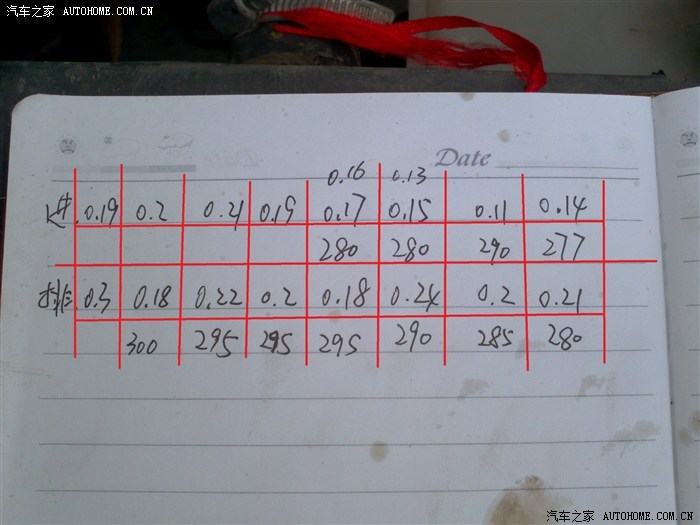 汽车之家 AUTOHOME.COM.CN
Date
0.16 0.13
进 0.19 0.2 0.21 0.19 0.17 0.15 0.11 0.14
280 280 290 277
排 0.3 0.18 0.22 0.2 0.18 0.24 0.2 0.21
300 295 295 295 290 285 280
汽车之家 AUTOHOME.COM.CN